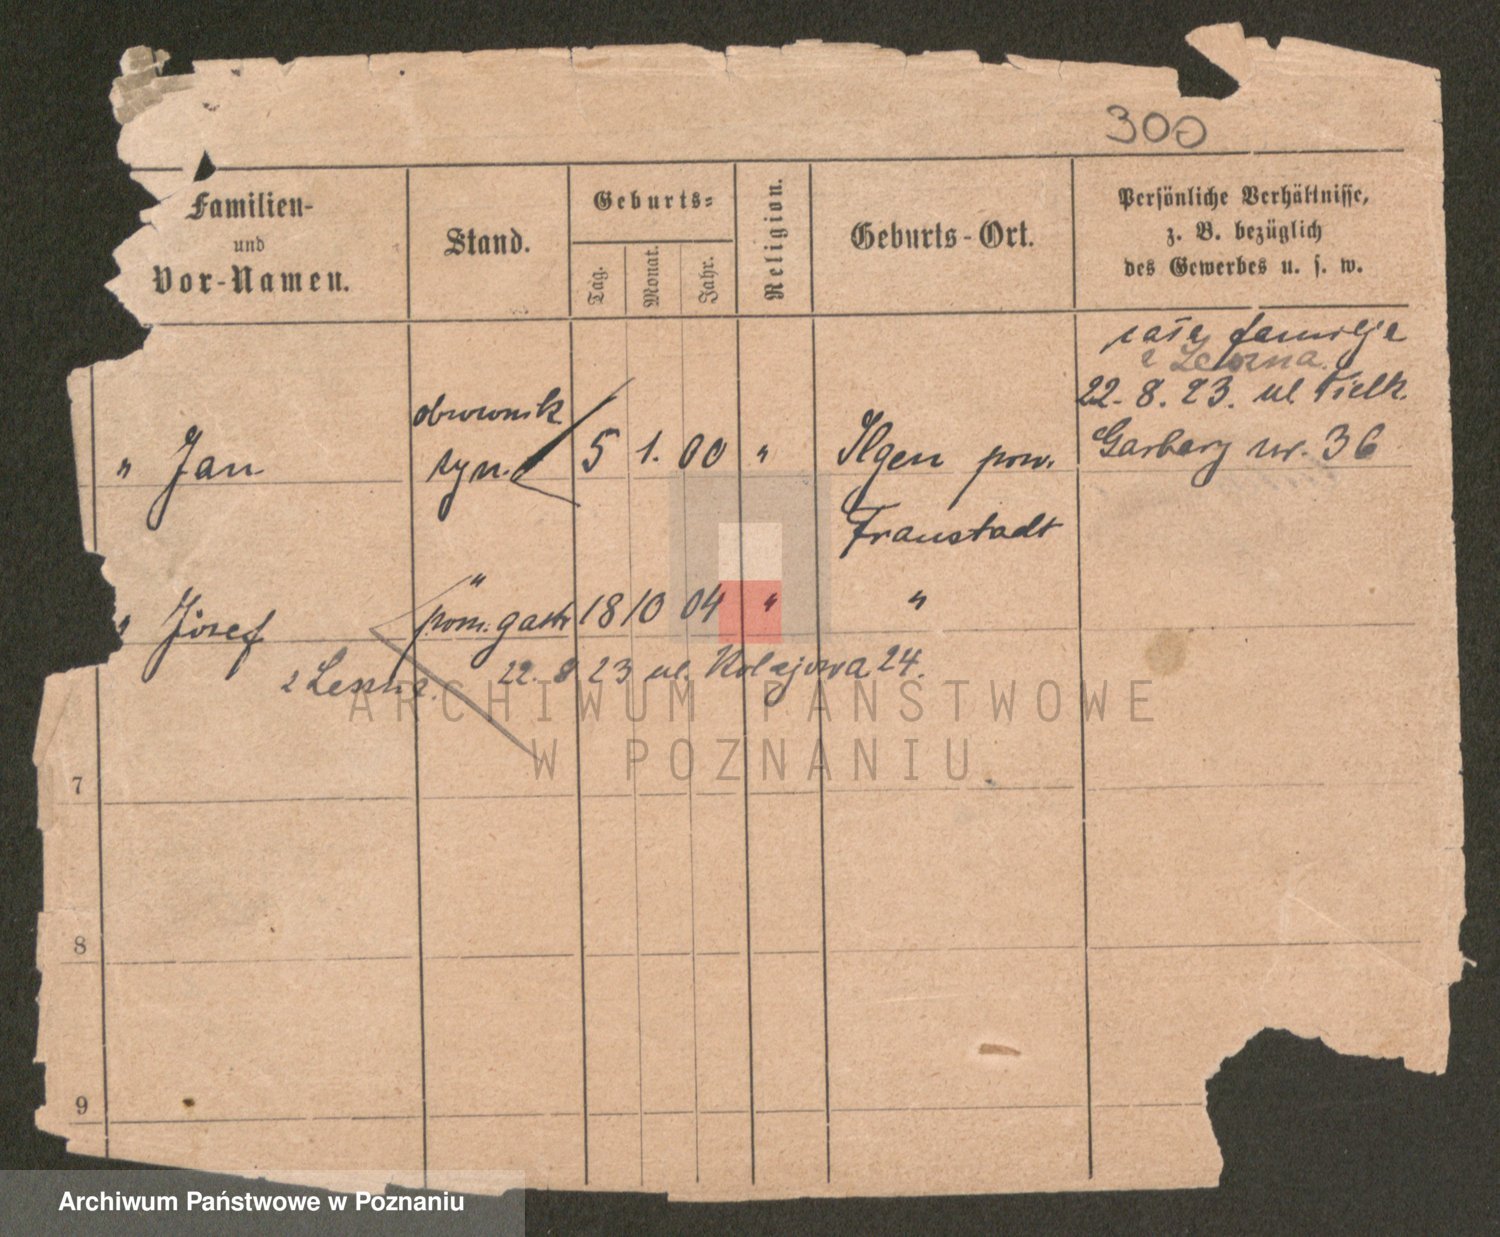 300
Familien-
und
Vor-Namen.
Stand.
Geburts-
Tag.
Monat.
Jahr.
Religion.
Geburts-Ort.
Persönliche Verhältnisse,
z. B. bezüglich
des Gewerbes u. s. w.
cała familja
z Leszna.
22. 8. 23. ul. Wielk.
Garbary nr. 36
" Jan
syn.
5 1. 00 "
Ilgen pow.
Fraustadt
" Józef
"
pom. gastr
18 10 04 " "
z Leszna. 22. 8 23 ul. Kolejowa 24.
ARCHIWUM PAŃSTWOWE
W POZNANIU
7
8
9
Archiwum Państwowe w Poznaniu